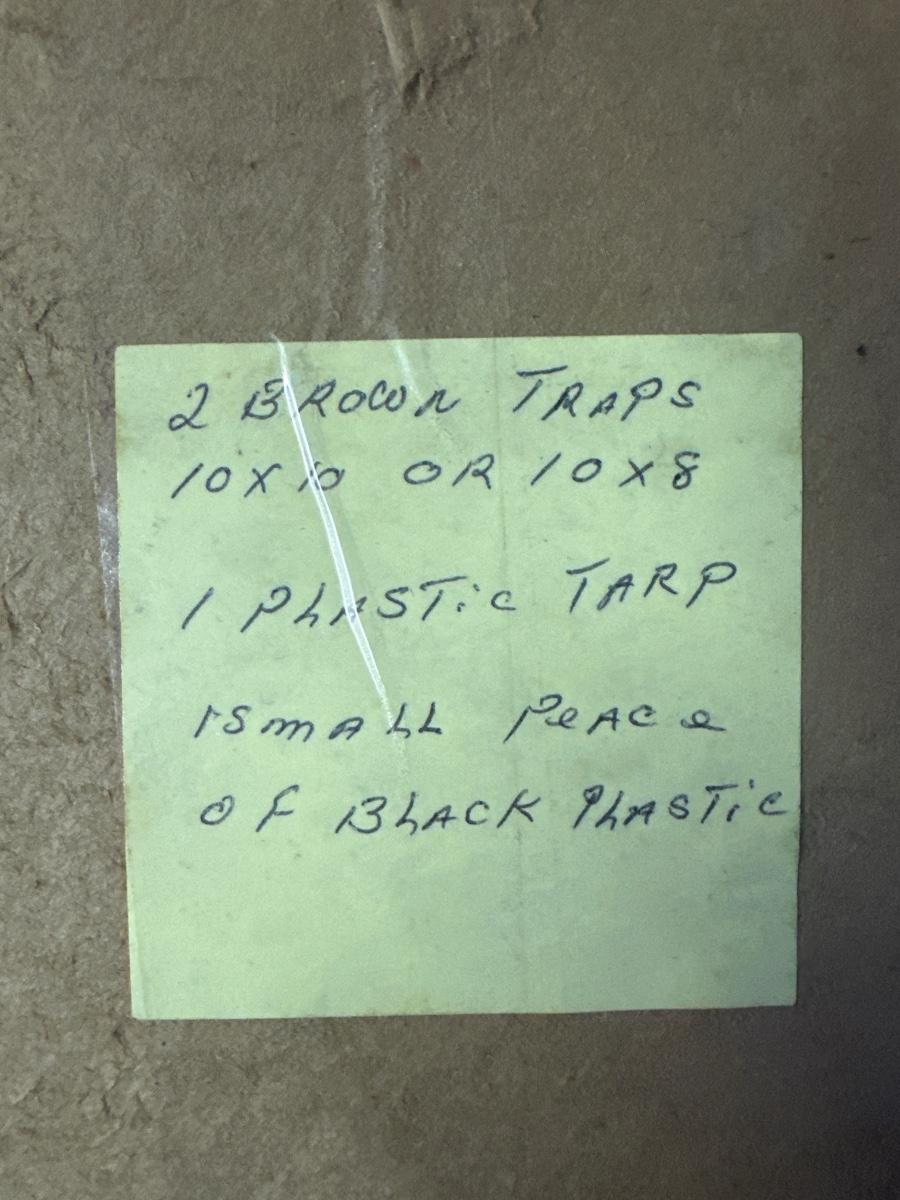 2 BROWN TRAPS
10 X 10 OR 10 X 8
1 PLASTic TARP
1 SmALL PeACe
OF BLACK PLASTiC